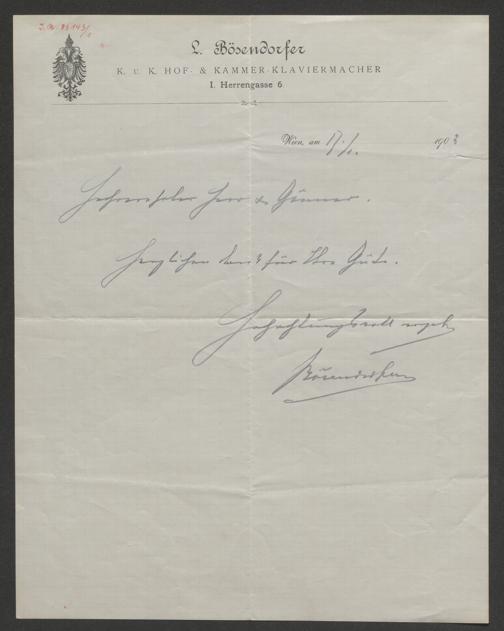 L. Bösendorfer
K. u. K. HOF- & KAMMER-KLAVIERMACHER
I. Herrengasse 6
Wien, am 17./ 190
Herr
Herzlichen Dank für Ihre Güte.
Hochachtungsvoll ergeb
Bösendorfer